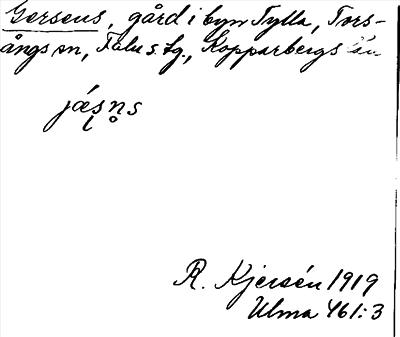 Gerseus, gård i byn Tylla, Tors-
ångs sn, Falu s. lg., Kopparbergs län
jä́sn̥s
R. Kjersén 1919
Ulma 461:3